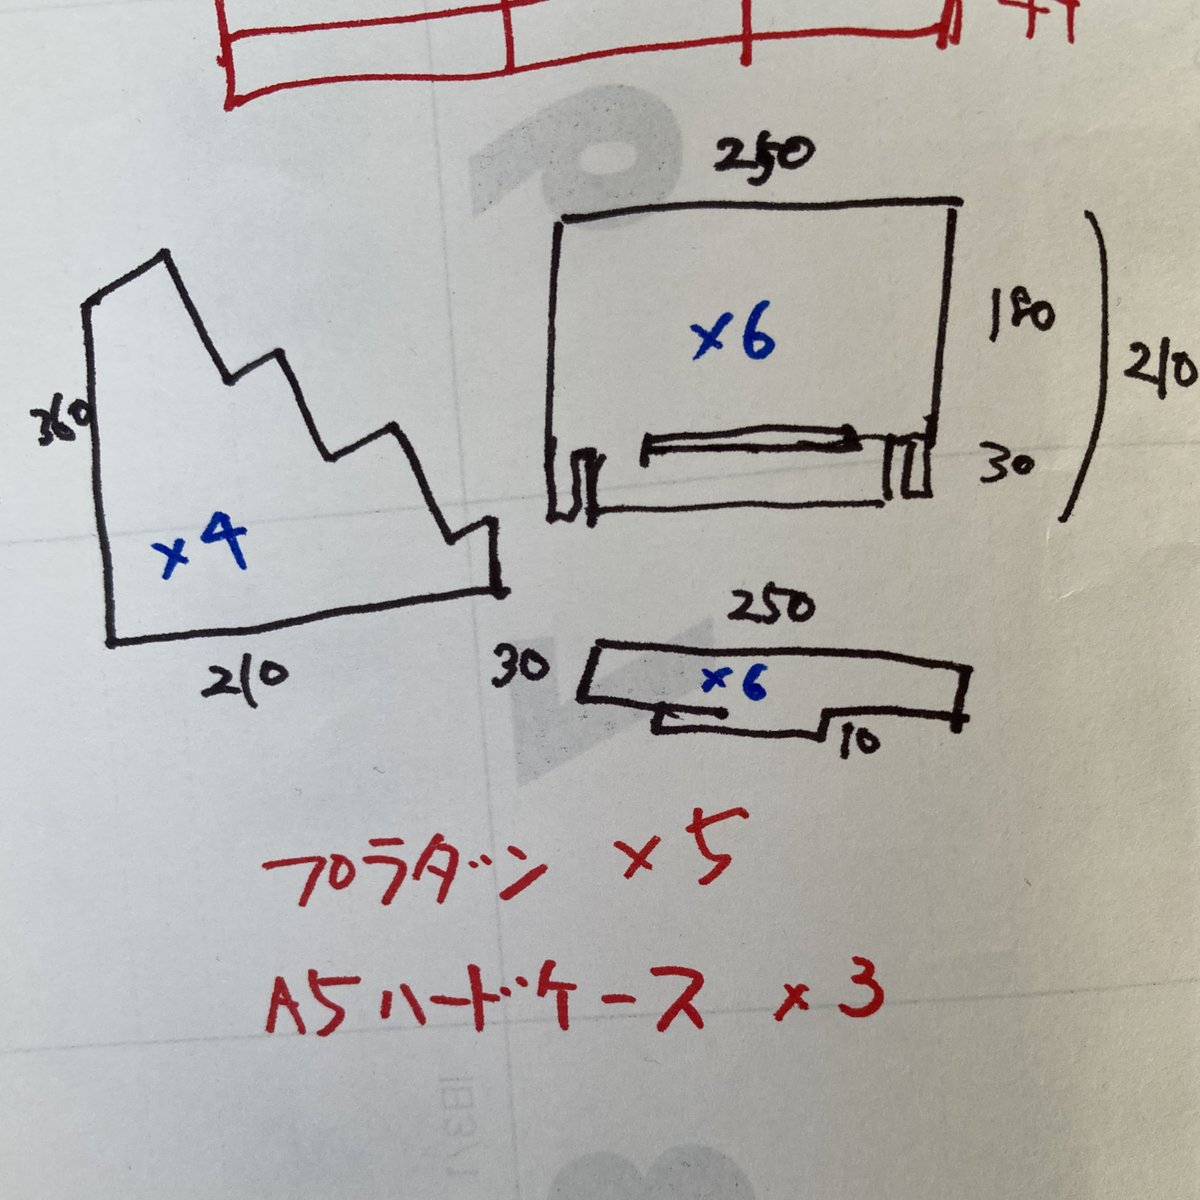 250
180
210
30
×6
360
×4
210
250
30
×6
10
プラダン ×5
A5ハードケース ×3